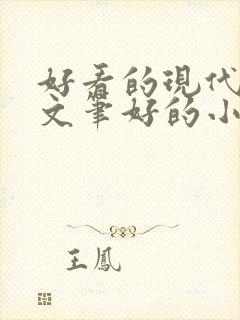 好看的现代
文笔好的小
王鳳